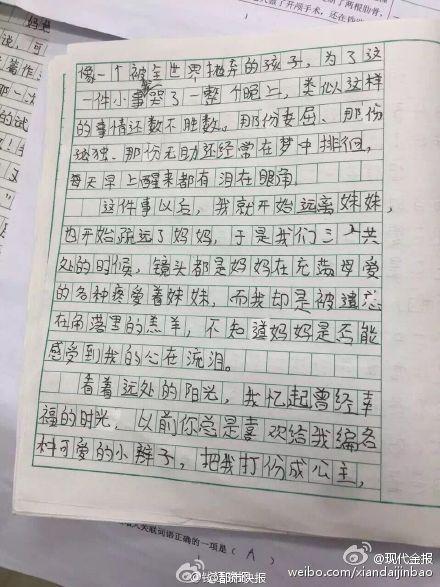 了开颅手术，还在
两根肋骨，
像一个被全世界抛弃的孩子，为了这
一件小事哭了一整个晚上，类似这样
的事情还数不胜数。那份委屈、那份
孤独、那份无助还经常在梦中排徊，
每天早上醒来都有泪在眼角。
这件事以后，我就开始远离妹妹，
也开始疏远了妈妈，于是我们三个共
处的时候，镜头都是妈妈在充满母爱
的各种疼爱着妹妹，而我却是被遗忘
在角落里的羔羊，不知道妈妈是否能
感受到我的心在流泪。
看着远处的阳光，我忆起曾经幸
福的时光，以前你总是喜欢给我编各
种可爱的小辫子，把我打份成公主，
关联句语正确的一项是（ A ）
@现代金报
weibo.com/xiandaijinbao
@都市快报